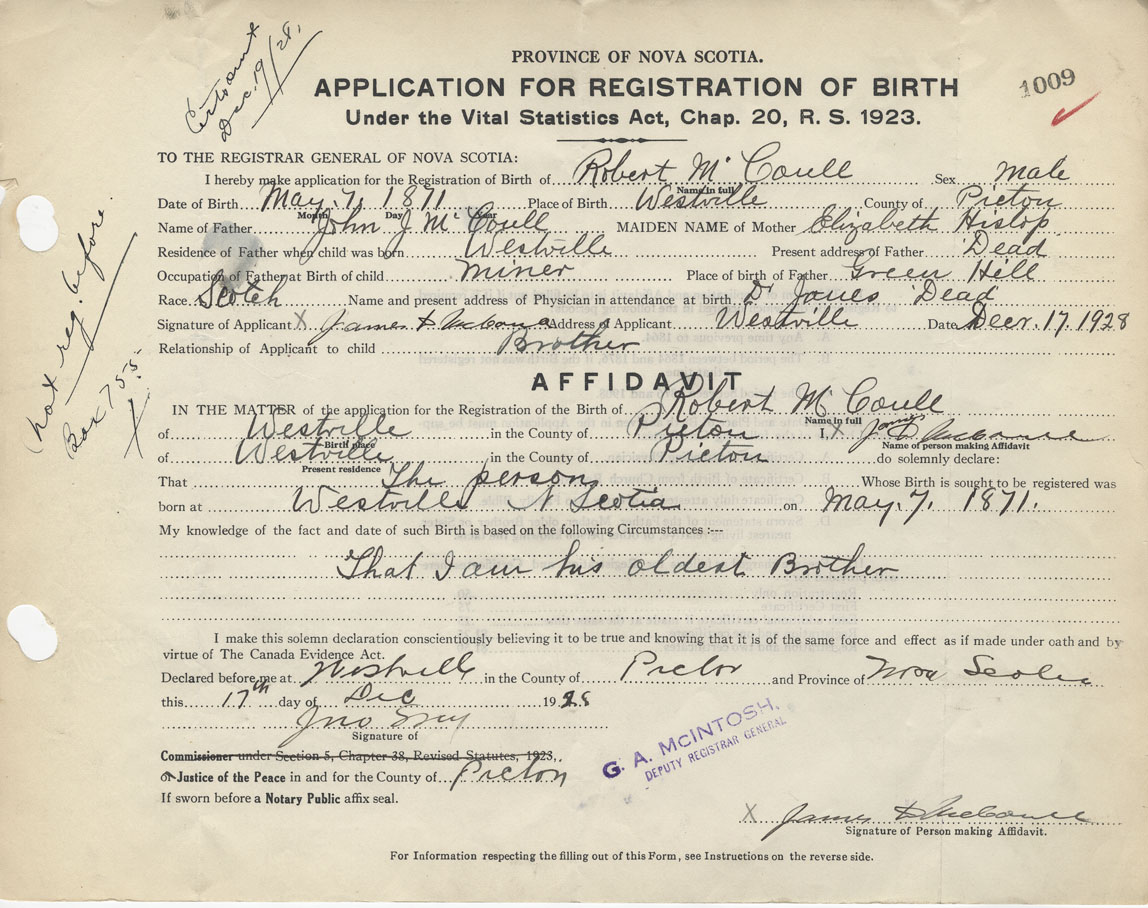 Cert. amt
Dec. 19/28.
PROVINCE OF NOVA SCOTIA.
APPLICATION FOR REGISTRATION OF BIRTH
Under the Vital Statistics Act, Chap. 20, R. S. 1923.
1009
TO THE REGISTRAR GENERAL OF NOVA SCOTIA:
I hereby make application for the Registration of Birth of Robert Mc Coull Sex Male
Name in full
Date of Birth May. 7. 1871 Place of Birth Westville County of Picton
Month Day Year
Name of Father John J Mc Coull MAIDEN NAME of Mother Elizabeth Hislop
Residence of Father when child was born Westville Present address of Father Dead
Occupation of Father at Birth of child miner Place of birth of Father Green Hill
Race Scotch Name and present address of Physician in attendance at birth Dr Jones Dead
Signature of Applicant X James D McCoull Address of Applicant Westville Date Decr. 17. 1928
Relationship of Applicant to child Brother
not reg. before.
Box 755.
AFFIDAVIT
IN THE MATTER of the application for the Registration of the Birth of Robert Mc Coull
Name in full
of Westville in the County of Picton I, X James D McCoull
Birth place Name of person making Affidavit
of Westville in the County of Picton do solemnly declare:
Present residence
That The person Whose Birth is sought to be registered was
born at Westville N Scotia on May. 7. 1871.
My knowledge of the fact and date of such Birth is based on the following Circumstances :---
That I am his oldest Brother
I make this solemn declaration conscientiously believing it to be true and knowing that it is of the same force and effect as if made under oath and by
virtue of The Canada Evidence Act.
Declared before me at Westville in the County of Pictou and Province of Nova Scotia
this 17th day of Dec 1928
Jno Gray
Signature of
Commissioner under Section 5, Chapter 38, Revised Statutes, 1923,
Justice of the Peace in and for the County of Picton
If sworn before a Notary Public affix seal.
G. A. McINTOSH.
DEPUTY REGISTRAR GENERAL
X James D McCoull
Signature of Person making Affidavit.
For Information respecting the filling out of this Form, see Instructions on the reverse side.